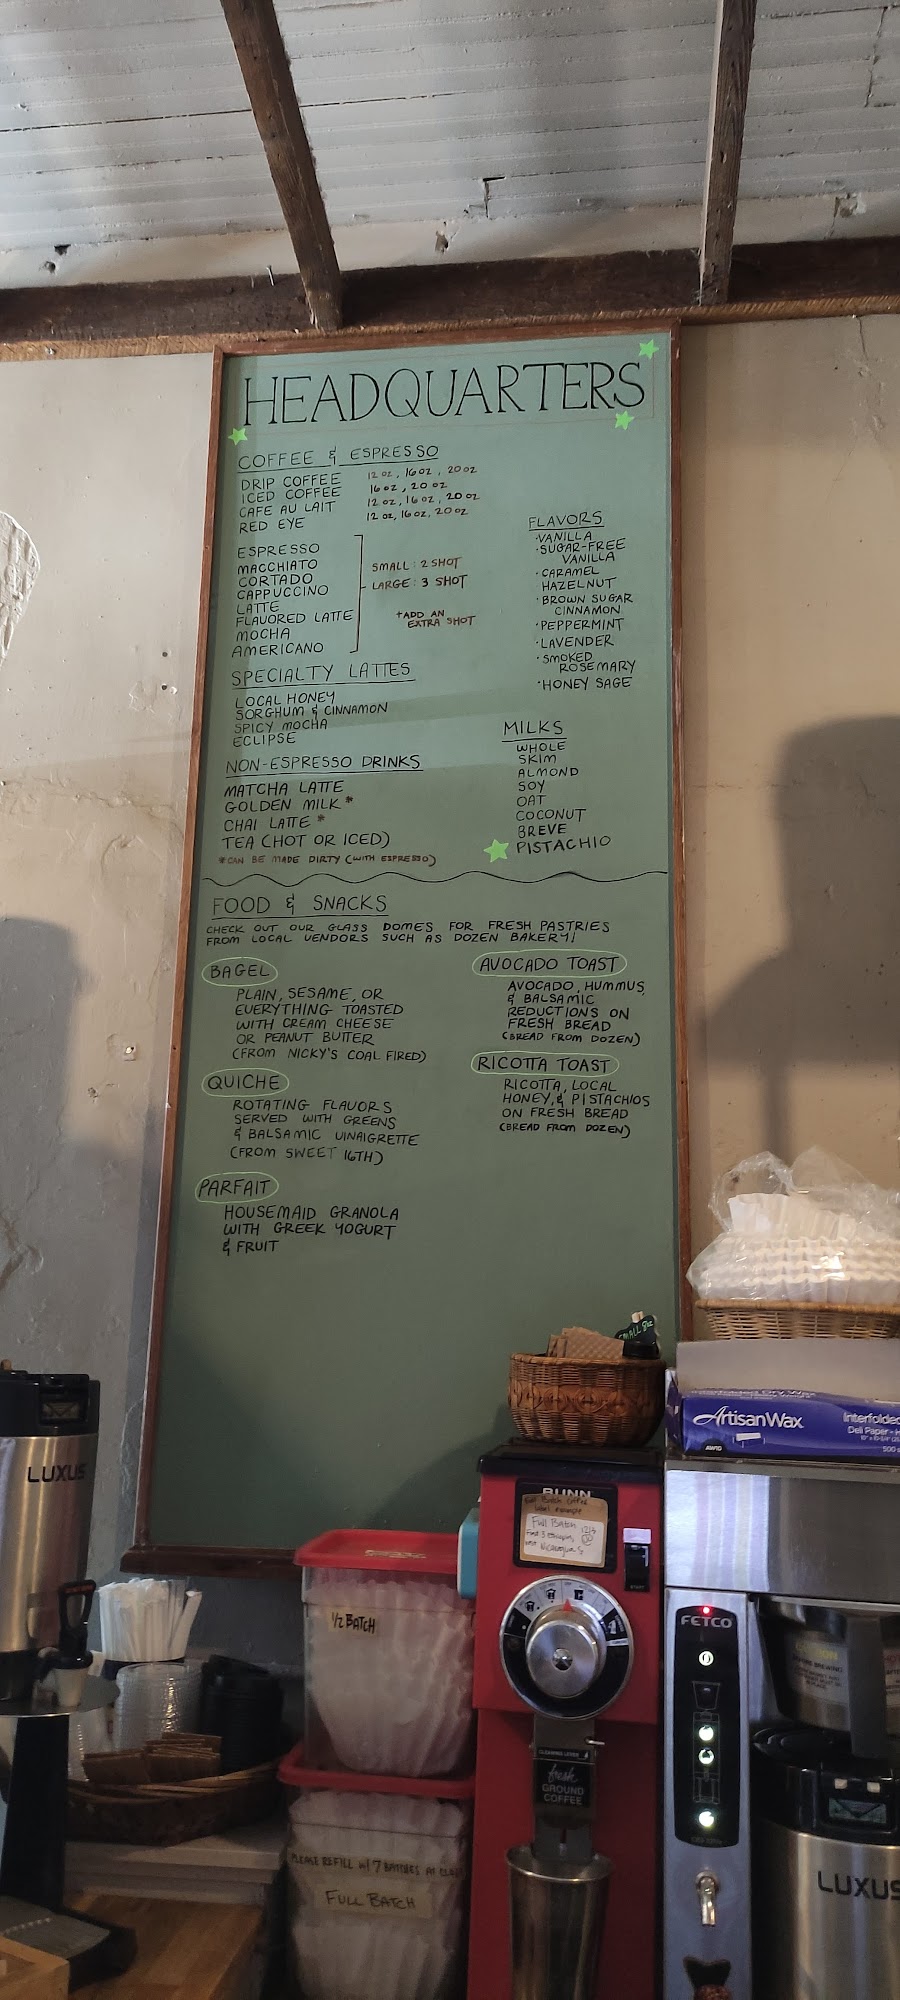 HEADQUARTERS
COFFEE & ESPRESSO
DRIP COFFEE 12 oz, 16 oz, 20 oz
ICED COFFEE 16 oz, 20 oz
CAFE AU LAIT 12 oz, 16 oz, 20 oz
RED EYE 12 oz, 16 oz, 20 oz
ESPRESSO
MACCHIATO
CORTADO
CAPPUCCINO
LATTE
FLAVORED LATTE
MOCHA
AMERICANO
SMALL: 2 SHOT
LARGE: 3 SHOT
+ADD AN
EXTRA SHOT
SPECIALTY LATTES
LOCAL HONEY
SORGHUM & CINNAMON
SPICY MOCHA
ECLIPSE
NON-ESPRESSO DRINKS
MATCHA LATTE
GOLDEN MILK*
CHAI LATTE*
TEA (HOT OR ICED)
*CAN BE MADE DIRTY (WITH ESPRESSO)
FLAVORS
·VANILLA
·SUGAR-FREE
VANILLA
·CARAMEL
HAZELNUT
·BROWN SUGAR
CINNAMON
·PEPPERMINT
·LAVENDER
·SMOKED
ROSEMARY
·HONEY SAGE
MILKS
WHOLE
SKIM
ALMOND
SOY
OAT
COCONUT
BREVE
PISTACHIO
FOOD & SNACKS
CHECK OUT OUR GLASS DOMES FOR FRESH PASTRIES
FROM LOCAL VENDORS SUCH AS DOZEN BAKERY!
BAGEL
PLAIN, SESAME, OR
EVERYTHING TOASTED
WITH CREAM CHEESE
OR PEANUT BUTTER
(FROM NICKY'S COAL FIRED)
QUICHE
ROTATING FLAVORS
SERVED WITH GREENS
& BALSAMIC VINAIGRETTE
(FROM SWEET 16TH)
PARFAIT
HOUSEMAID GRANOLA
WITH GREEK YOGURT
& FRUIT
AVOCADO TOAST
AVOCADO, HUMMUS,
& BALSAMIC
REDUCTIONS ON
FRESH BREAD
(BREAD FROM DOZEN)
RICOTTA TOAST
RICOTTA, LOCAL
HONEY, & PISTACHIOS
ON FRESH BREAD
(BREAD FROM DOZEN)
SMALL 8oz
ArtisanWax
Interfolded
Deli Paper
LUXUS
BUNN
Full Batch
1/2 BATCH
FETCO
CLEANING LEVER
fresh
GROUND
COFFEE
PLEASE REFILL w/ 7 BATCHES AT
FULL BATCH
LUXUS